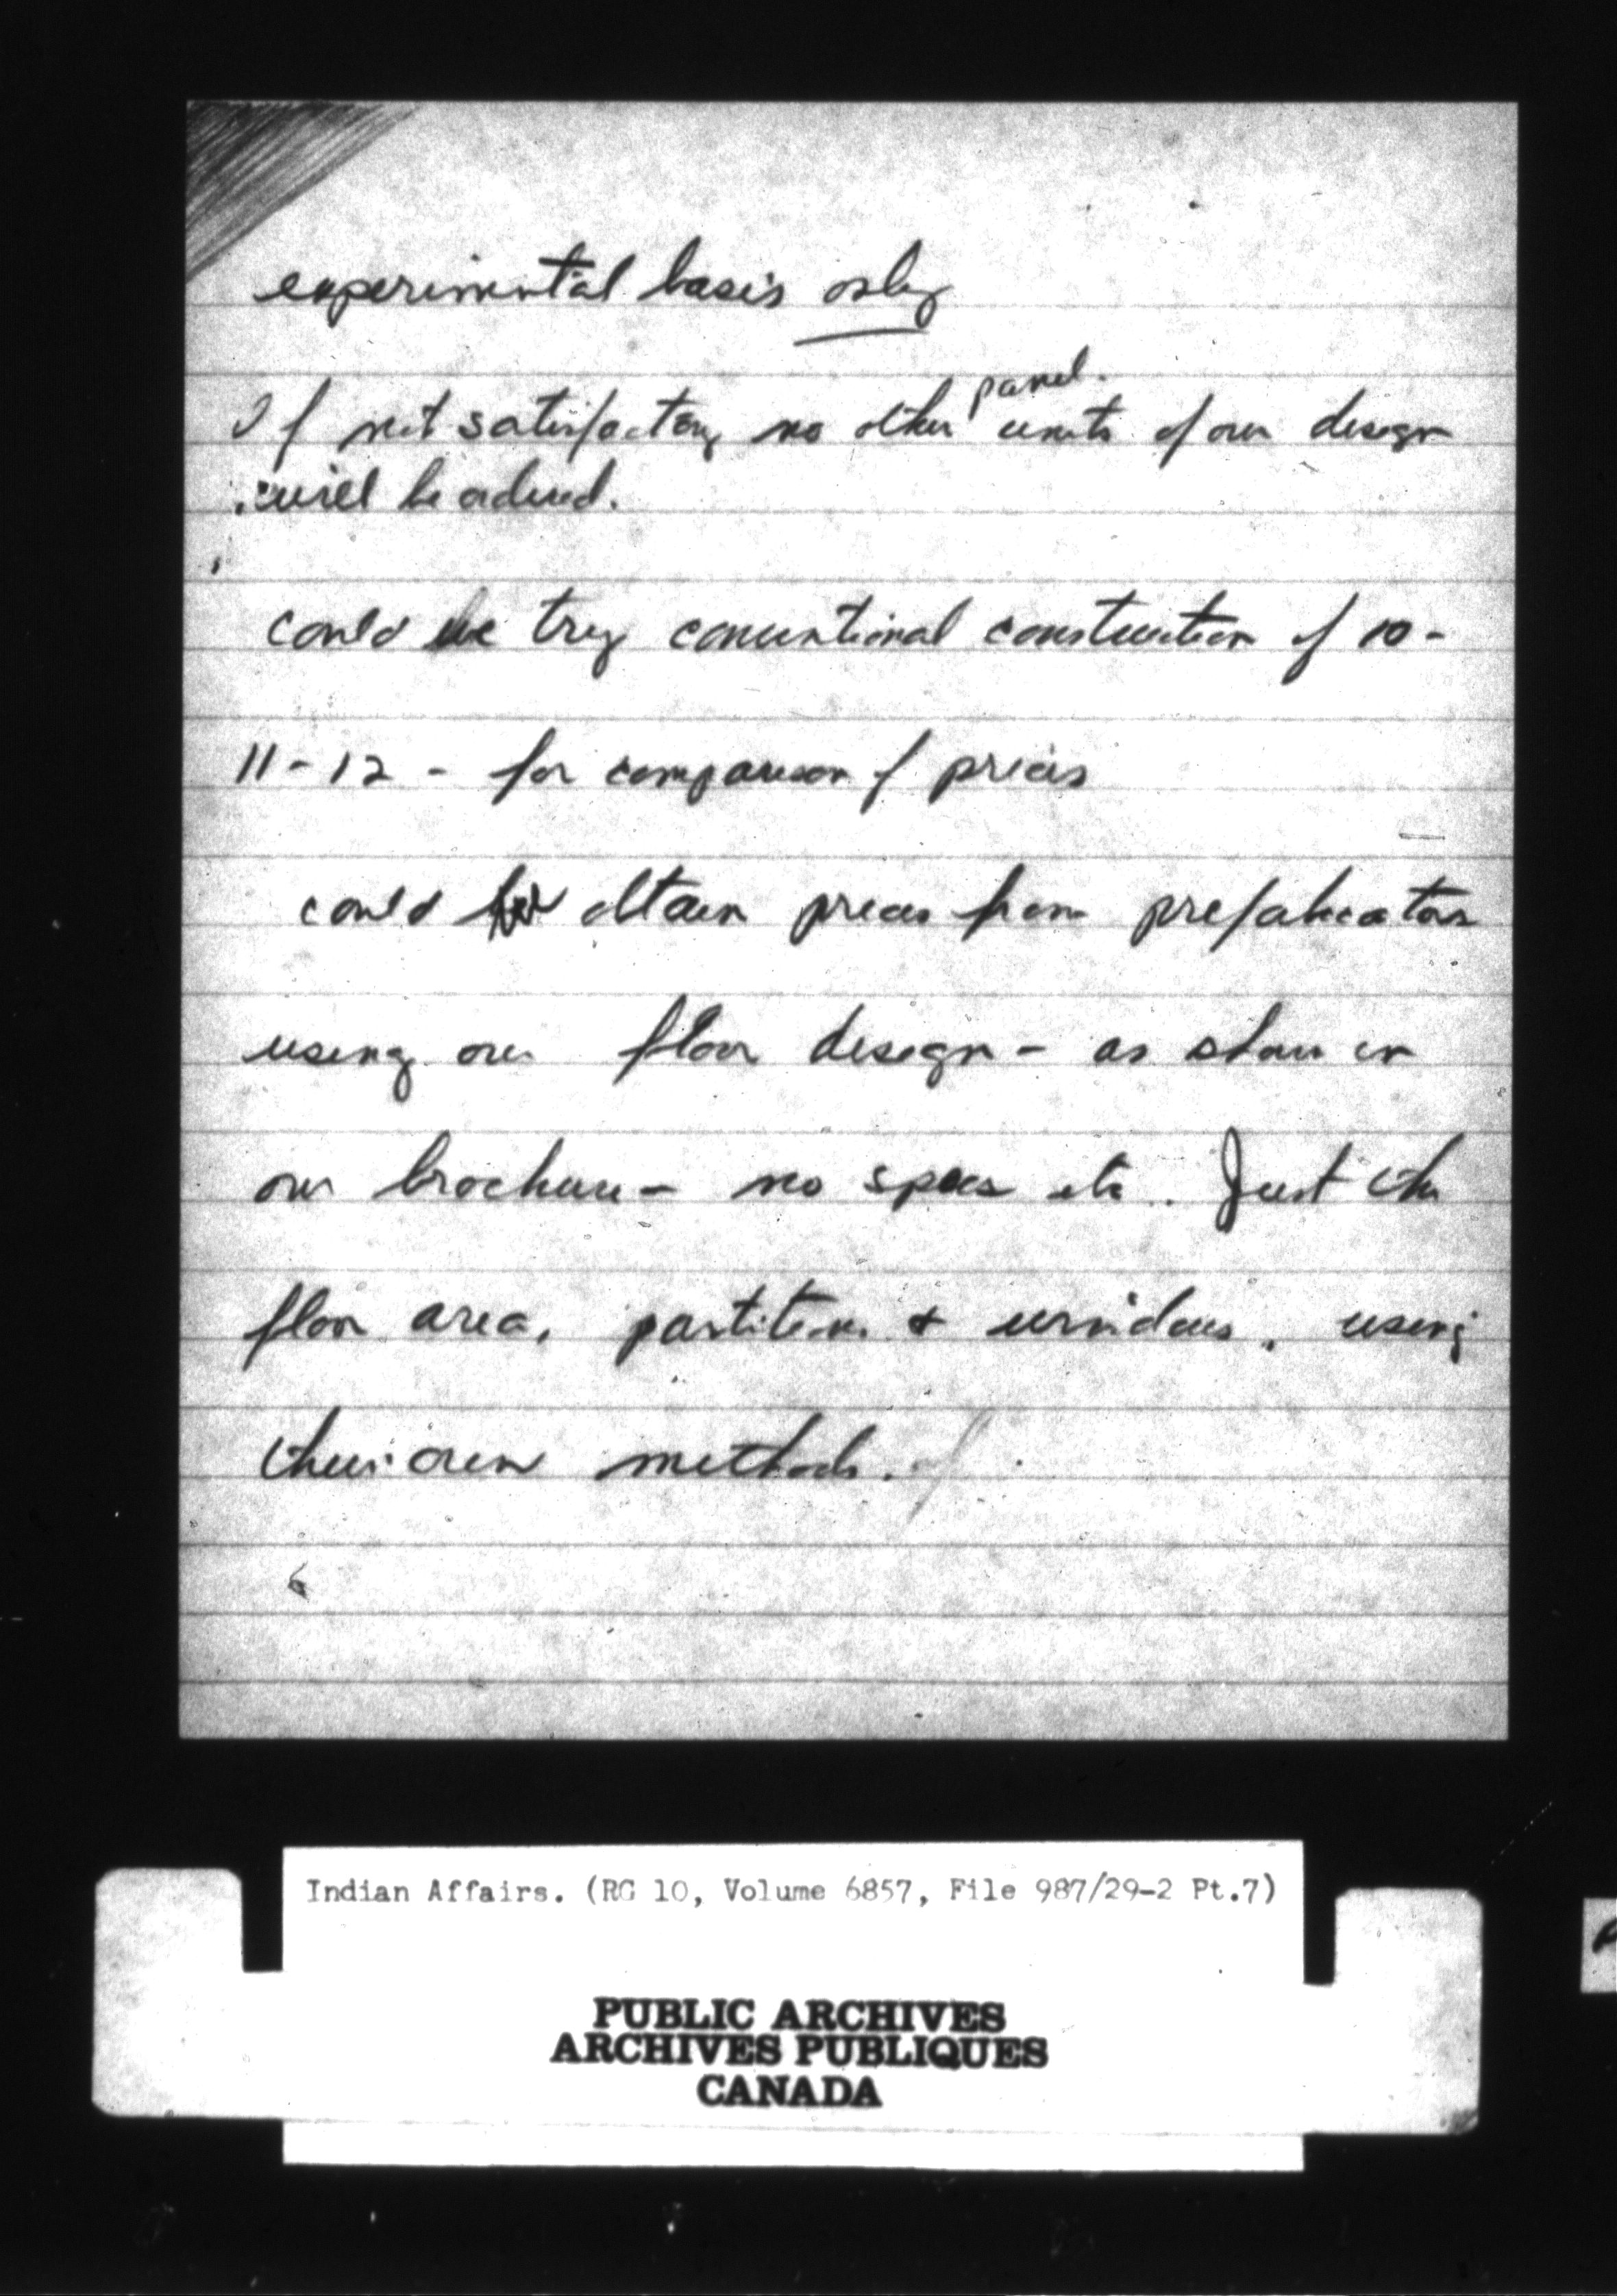 experimental basis only
If not satisfactory no other panel. units of our design
will be ordered.
could we try conventional construction of 10-
11-12 - for comparison of prices
could we obtain prices from prefabricators
using our floor design - as shown in
our brochure - no specs etc. Just the
floor area, partitions & windows, using
their own methods.
Indian Affairs. (RG 10, Volume 6857, File 987/29-2 Pt.7)
PUBLIC ARCHIVES
ARCHIVES PUBLIQUES
CANADA